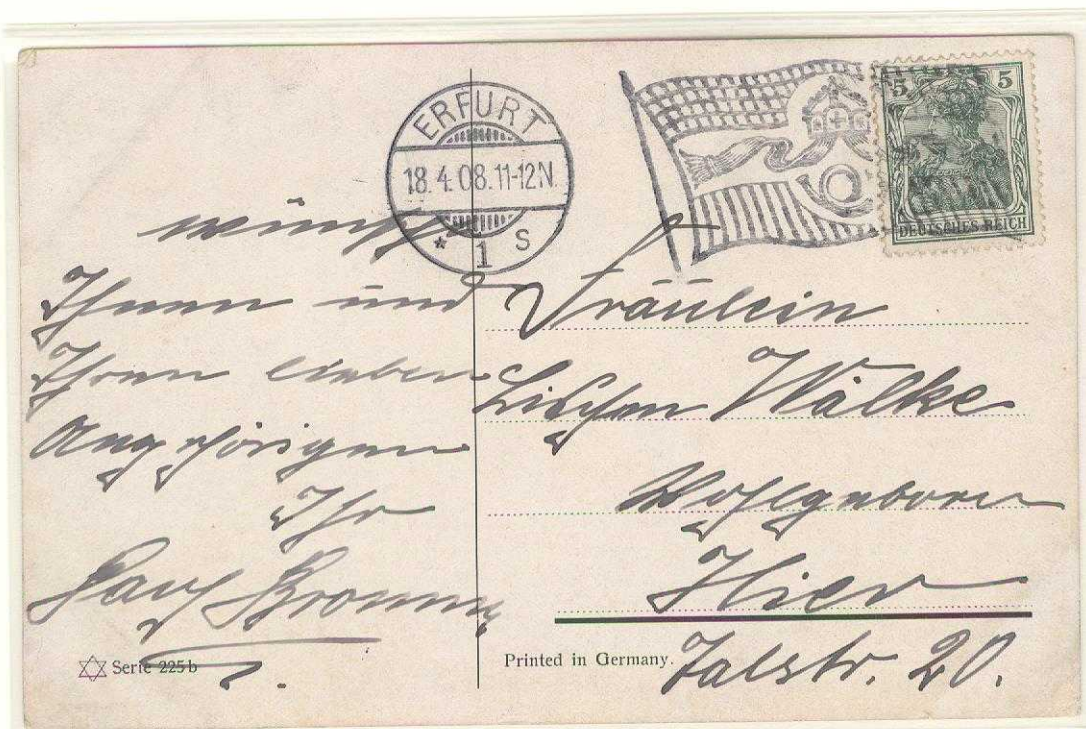 ERFURT
18.4.08.11-12N.
* 1 S
5 5
DEUTSCHES REICH
wünscht
Ihnen und
Ihren lieben
Angehörigen
Ihr
Fräulein
Lieschen Wälke
Wohlgeboren
Hier
Talstr. 20.
Serie 225 b
Printed in Germany.